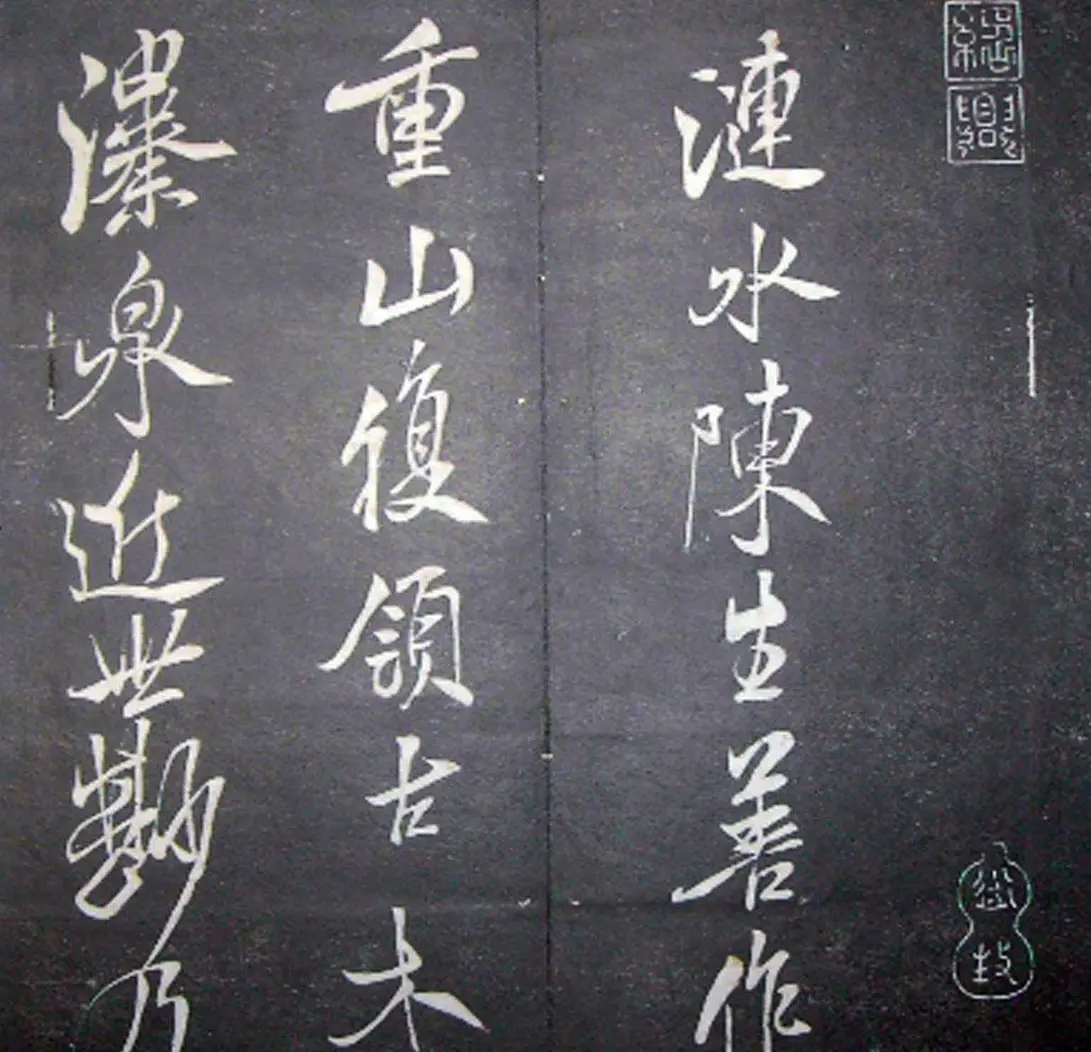 漣水陳生善作
重山復領古木
瀑泉近世乃